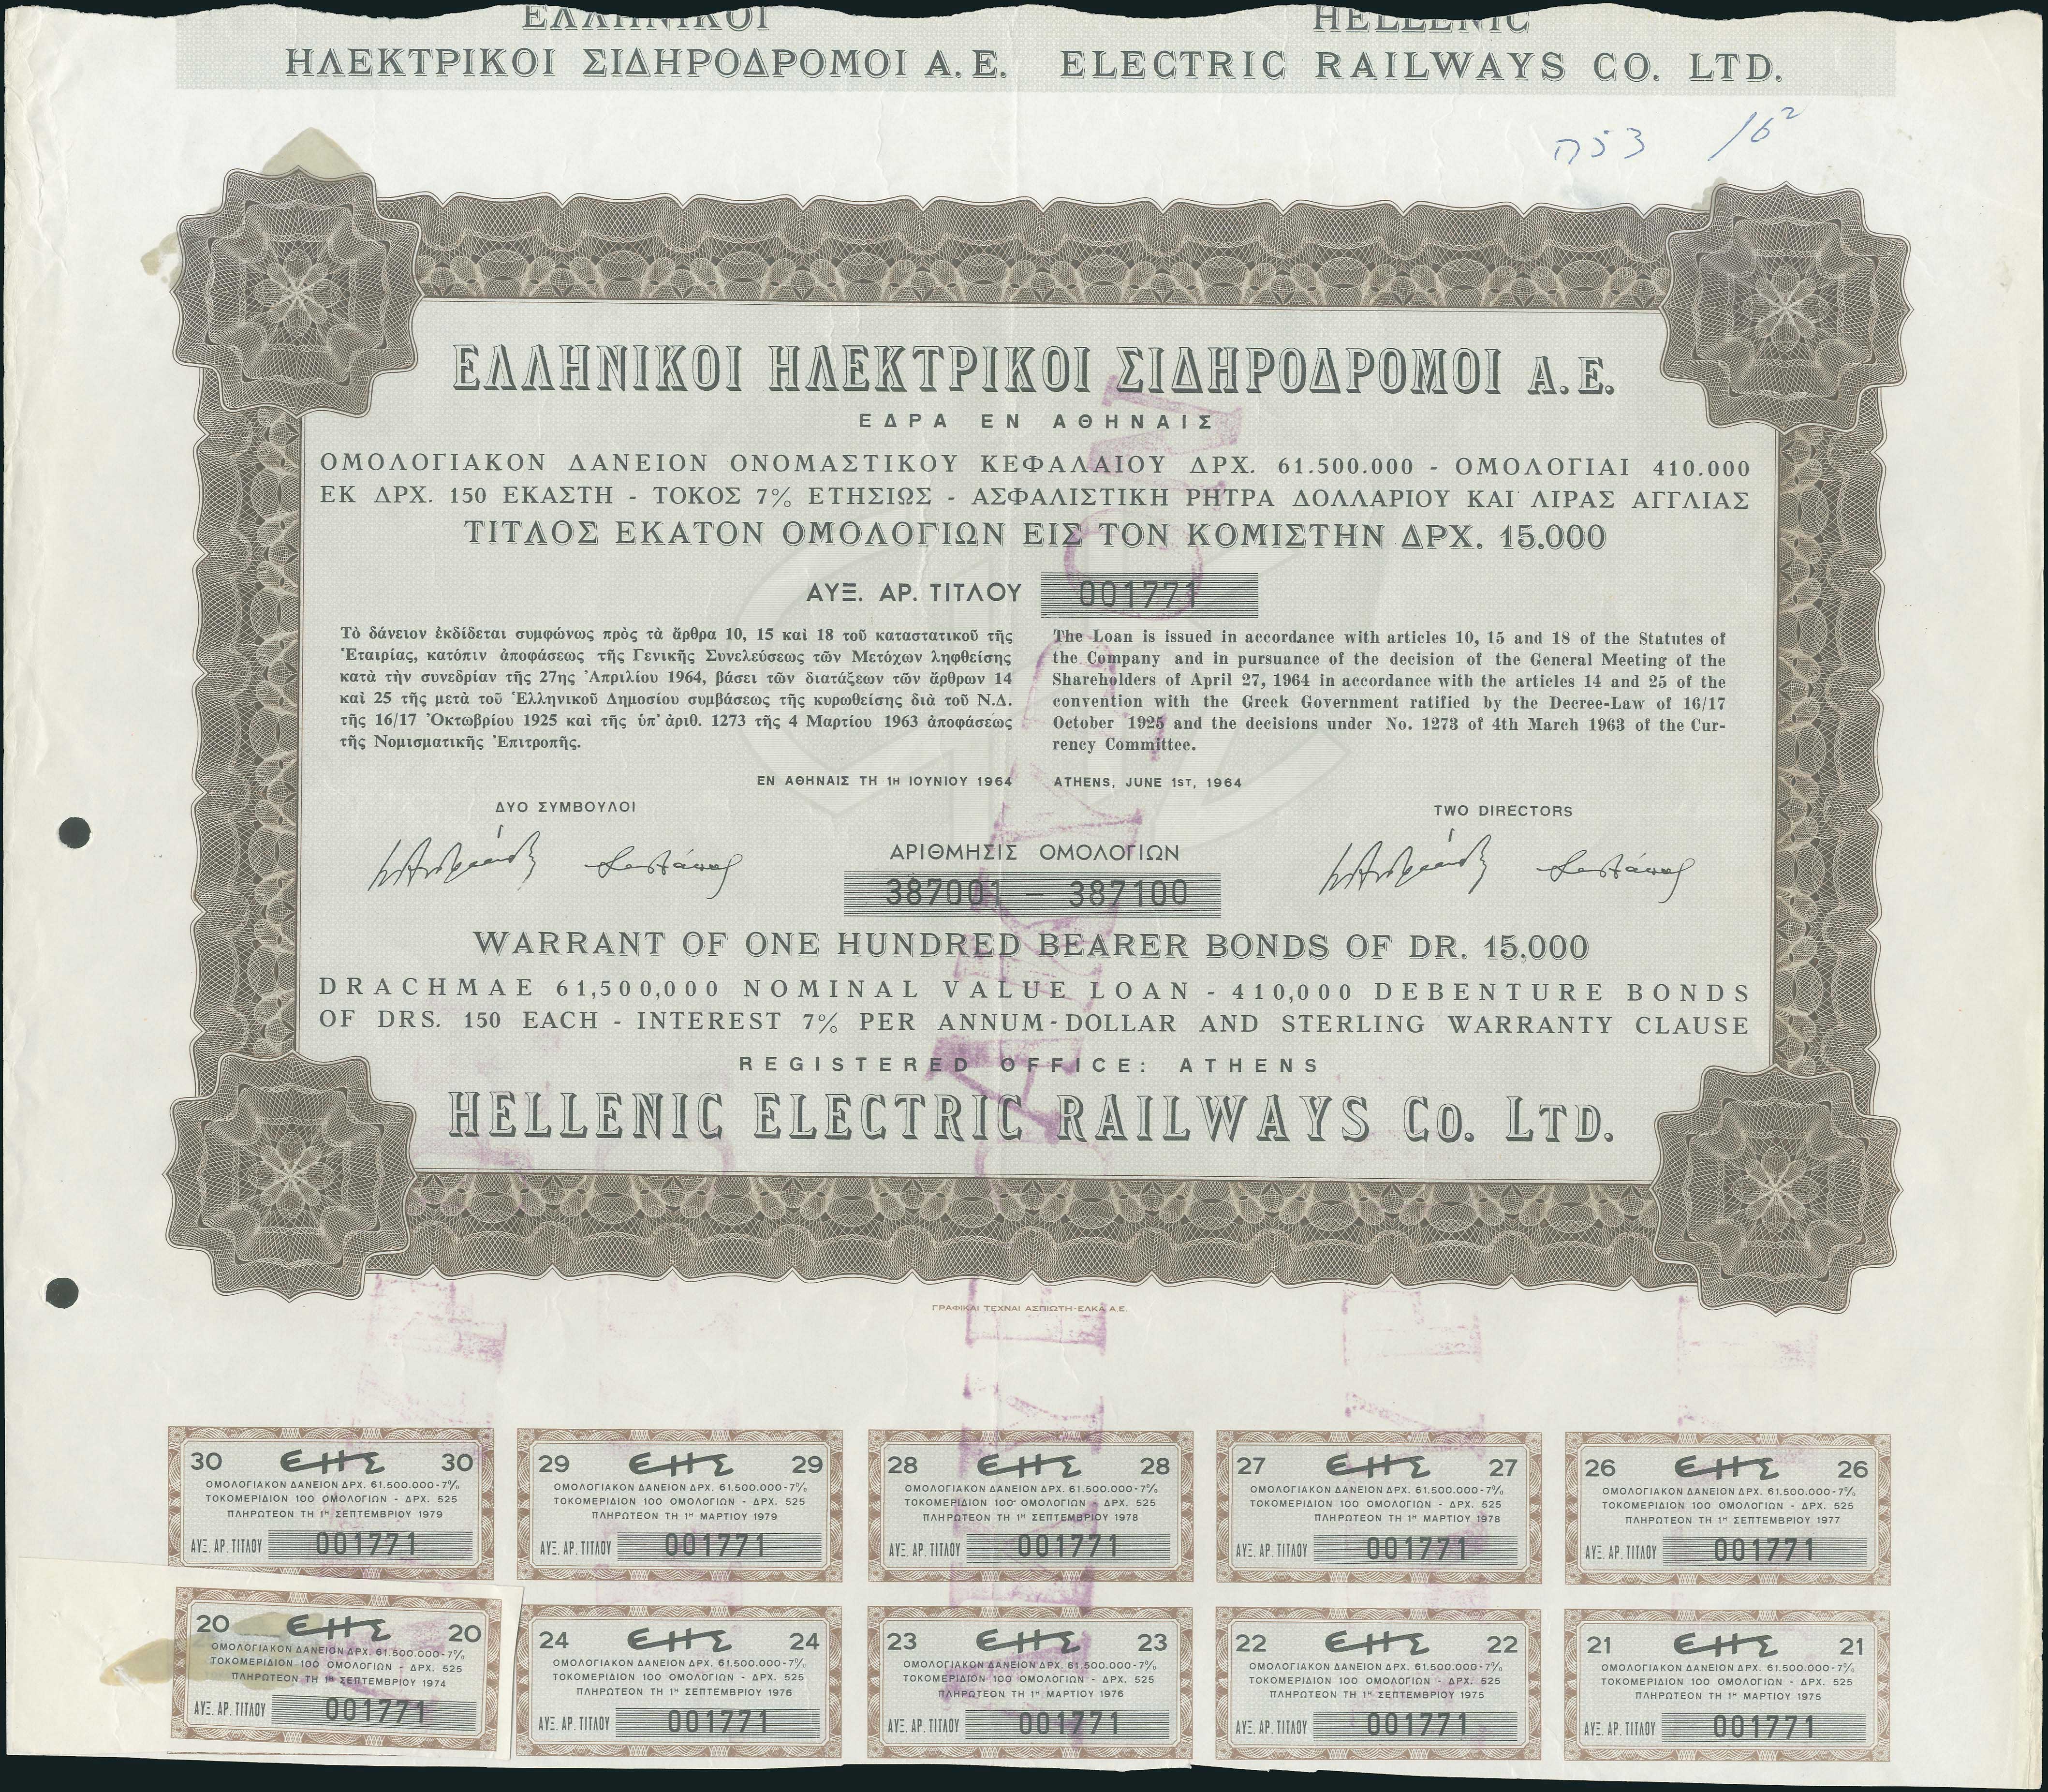 ΕΛΛΗΝΙΚΟΙ
ΗΛΕΚΤΡΙΚΟΙ ΣΙΔΗΡΟΔΡΟΜΟΙ Α.Ε.
HELLENIC
ELECTRIC RAILWAYS CO. LTD.
ΕΛΛΗΝΙΚΟΙ ΗΛΕΚΤΡΙΚΟΙ ΣΙΔΗΡΟΔΡΟΜΟΙ Α.Ε.
ΕΔΡΑ ΕΝ ΑΘΗΝΑΙΣ
ΟΜΟΛΟΓΙΑΚΟΝ ΔΑΝΕΙΟΝ ΟΝΟΜΑΣΤΙΚΟΥ ΚΕΦΑΛΑΙΟΥ ΔΡΧ. 61.500.000 - ΟΜΟΛΟΓΙΑΙ 410.000
ΕΚ ΔΡΧ. 150 ΕΚΑΣΤΗ - ΤΟΚΟΣ 7% ΕΤΗΣΙΩΣ - ΑΣΦΑΛΙΣΤΙΚΗ ΡΗΤΡΑ ΔΟΛΛΑΡΙΟΥ ΚΑΙ ΛΙΡΑΣ ΑΓΓΛΙΑΣ
ΤΙΤΛΟΣ ΕΚΑΤΟΝ ΟΜΟΛΟΓΙΩΝ ΕΙΣ ΤΟΝ ΚΟΜΙΣΤΗΝ ΔΡΧ. 15.000
ΑΥΞ. ΑΡ. ΤΙΤΛΟΥ 001771
Τὸ δάνειον ἐκδίδεται συμφώνως πρὸς τὰ ἄρθρα 10, 15 καὶ 18 τοῦ καταστατικοῦ τῆς
Ἑταιρίας, κατόπιν ἀποφάσεως τῆς Γενικῆς Συνελεύσεως τῶν Μετόχων ληφθείσης
κατὰ τὴν συνεδρίαν τῆς 27ης Ἀπριλίου 1964, βάσει τῶν διατάξεων τῶν ἄρθρων 14
καὶ 25 τῆς μετὰ τοῦ Ἑλληνικοῦ Δημοσίου συμβάσεως τῆς κυρωθείσης διὰ τοῦ Ν.Δ.
τῆς 16/17 Ὀκτωβρίου 1925 καὶ τῆς ὑπ' ἀριθ. 1273 τῆς 4 Μαρτίου 1963 ἀποφάσεως
τῆς Νομισματικῆς Ἐπιτροπῆς.
The Loan is issued in accordance with articles 10, 15 and 18 of the Statutes of
the Company and in pursuance of the decision of the General Meeting of the
Shareholders of April 27, 1964 in accordance with the articles 14 and 25 of the
convention with the Greek Government ratified by the Decree-Law of 16/17
October 1925 and the decisions under No. 1273 of 4th March 1963 of the Cur-
rency Committee.
ΕΝ ΑΘΗΝΑΙΣ ΤΗ 1Η ΙΟΥΝΙΟΥ 1964
ATHENS, JUNE 1ST, 1964
ΔΥΟ ΣΥΜΒΟΥΛΟΙ
TWO DIRECTORS
ΑΡΙΘΜΗΣΙΣ ΟΜΟΛΟΓΙΩΝ
387001 - 387100
WARRANT OF ONE HUNDRED BEARER BONDS OF DR. 15,000
DRACHMAE 61,500,000 NOMINAL VALUE LOAN - 410,000 DEBENTURE BONDS
OF DRS. 150 EACH - INTEREST 7% PER ANNUM - DOLLAR AND STERLING WARRANTY CLAUSE
REGISTERED OFFICE: ATHENS
HELLENIC ELECTRIC RAILWAYS CO. LTD.
ΓΡΑΦΙΚΑΙ ΤΕΧΝΑΙ ΑΣΠΙΩΤΗ-ΕΛΚΑ Α.Ε.
30 ΕΗΣ 30
ΟΜΟΛΟΓΙΑΚΟΝ ΔΑΝΕΙΟΝ ΔΡΧ. 61.500.000-7%
ΤΟΚΟΜΕΡΙΔΙΟΝ 100 ΟΜΟΛΟΓΙΩΝ - ΔΡΧ. 525
ΠΛΗΡΩΤΕΟΝ ΤΗ 1Η ΣΕΠΤΕΜΒΡΙΟΥ 1979
ΑΥΞ. ΑΡ. ΤΙΤΛΟΥ 001771
29 ΕΗΣ 29
ΟΜΟΛΟΓΙΑΚΟΝ ΔΑΝΕΙΟΝ ΔΡΧ. 61.500.000-7%
ΤΟΚΟΜΕΡΙΔΙΟΝ 100 ΟΜΟΛΟΓΙΩΝ - ΔΡΧ. 525
ΠΛΗΡΩΤΕΟΝ ΤΗ 1Η ΜΑΡΤΙΟΥ 1979
ΑΥΞ. ΑΡ. ΤΙΤΛΟΥ 001771
28 ΕΗΣ 28
ΟΜΟΛΟΓΙΑΚΟΝ ΔΑΝΕΙΟΝ ΔΡΧ. 61.500.000-7%
ΤΟΚΟΜΕΡΙΔΙΟΝ 100 ΟΜΟΛΟΓΙΩΝ - ΔΡΧ. 525
ΠΛΗΡΩΤΕΟΝ ΤΗ 1Η ΣΕΠΤΕΜΒΡΙΟΥ 1978
ΑΥΞ. ΑΡ. ΤΙΤΛΟΥ 001771
27 ΕΗΣ 27
ΟΜΟΛΟΓΙΑΚΟΝ ΔΑΝΕΙΟΝ ΔΡΧ. 61.500.000-7%
ΤΟΚΟΜΕΡΙΔΙΟΝ 100 ΟΜΟΛΟΓΙΩΝ - ΔΡΧ. 525
ΠΛΗΡΩΤΕΟΝ ΤΗ 1Η ΜΑΡΤΙΟΥ 1978
ΑΥΞ. ΑΡ. ΤΙΤΛΟΥ 001771
26 ΕΗΣ 26
ΟΜΟΛΟΓΙΑΚΟΝ ΔΑΝΕΙΟΝ ΔΡΧ. 61.500.000-7%
ΤΟΚΟΜΕΡΙΔΙΟΝ 100 ΟΜΟΛΟΓΙΩΝ - ΔΡΧ. 525
ΠΛΗΡΩΤΕΟΝ ΤΗ 1Η ΣΕΠΤΕΜΒΡΙΟΥ 1977
ΑΥΞ. ΑΡ. ΤΙΤΛΟΥ 001771
20 ΕΗΣ 20
ΟΜΟΛΟΓΙΑΚΟΝ ΔΑΝΕΙΟΝ ΔΡΧ. 61.500.000-7%
ΤΟΚΟΜΕΡΙΔΙΟΝ 100 ΟΜΟΛΟΓΙΩΝ - ΔΡΧ. 525
ΠΛΗΡΩΤΕΟΝ ΤΗ 1Η ΣΕΠΤΕΜΒΡΙΟΥ 1974
ΑΥΞ. ΑΡ. ΤΙΤΛΟΥ 001771
24 ΕΗΣ 24
ΟΜΟΛΟΓΙΑΚΟΝ ΔΑΝΕΙΟΝ ΔΡΧ. 61.500.000-7%
ΤΟΚΟΜΕΡΙΔΙΟΝ 100 ΟΜΟΛΟΓΙΩΝ - ΔΡΧ. 525
ΠΛΗΡΩΤΕΟΝ ΤΗ 1Η ΣΕΠΤΕΜΒΡΙΟΥ 1976
ΑΥΞ. ΑΡ. ΤΙΤΛΟΥ 001771
23 ΕΗΣ 23
ΟΜΟΛΟΓΙΑΚΟΝ ΔΑΝΕΙΟΝ ΔΡΧ. 61.500.000-7%
ΤΟΚΟΜΕΡΙΔΙΟΝ 100 ΟΜΟΛΟΓΙΩΝ - ΔΡΧ. 525
ΠΛΗΡΩΤΕΟΝ ΤΗ 1Η ΜΑΡΤΙΟΥ 1976
ΑΥΞ. ΑΡ. ΤΙΤΛΟΥ 001771
22 ΕΗΣ 22
ΟΜΟΛΟΓΙΑΚΟΝ ΔΑΝΕΙΟΝ ΔΡΧ. 61.500.000-7%
ΤΟΚΟΜΕΡΙΔΙΟΝ 100 ΟΜΟΛΟΓΙΩΝ - ΔΡΧ. 525
ΠΛΗΡΩΤΕΟΝ ΤΗ 1Η ΣΕΠΤΕΜΒΡΙΟΥ 1975
ΑΥΞ. ΑΡ. ΤΙΤΛΟΥ 001771
21 ΕΗΣ 21
ΟΜΟΛΟΓΙΑΚΟΝ ΔΑΝΕΙΟΝ ΔΡΧ. 61.500.000-7%
ΤΟΚΟΜΕΡΙΔΙΟΝ 100 ΟΜΟΛΟΓΙΩΝ - ΔΡΧ. 525
ΠΛΗΡΩΤΕΟΝ ΤΗ 1Η ΜΑΡΤΙΟΥ 1975
ΑΥΞ. ΑΡ. ΤΙΤΛΟΥ 001771